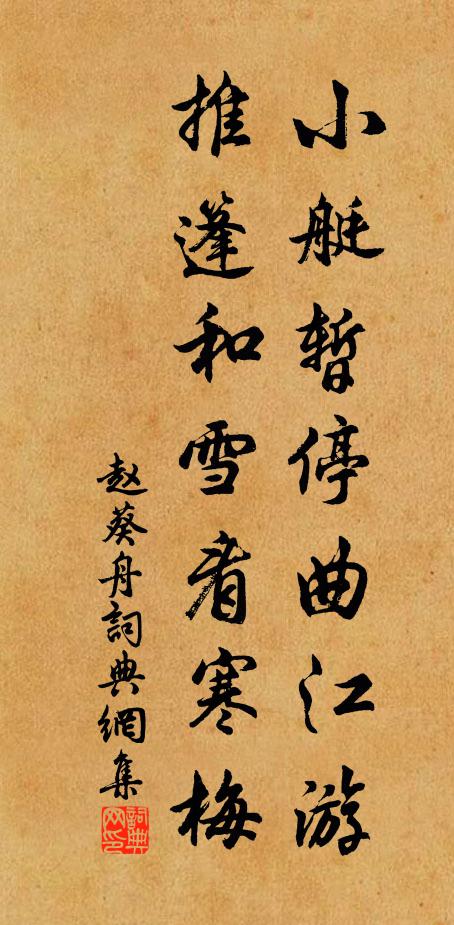 小艇暫停曲江游
推蓬和雪看寒梅
赵葵舟詞典網集
詞典网印